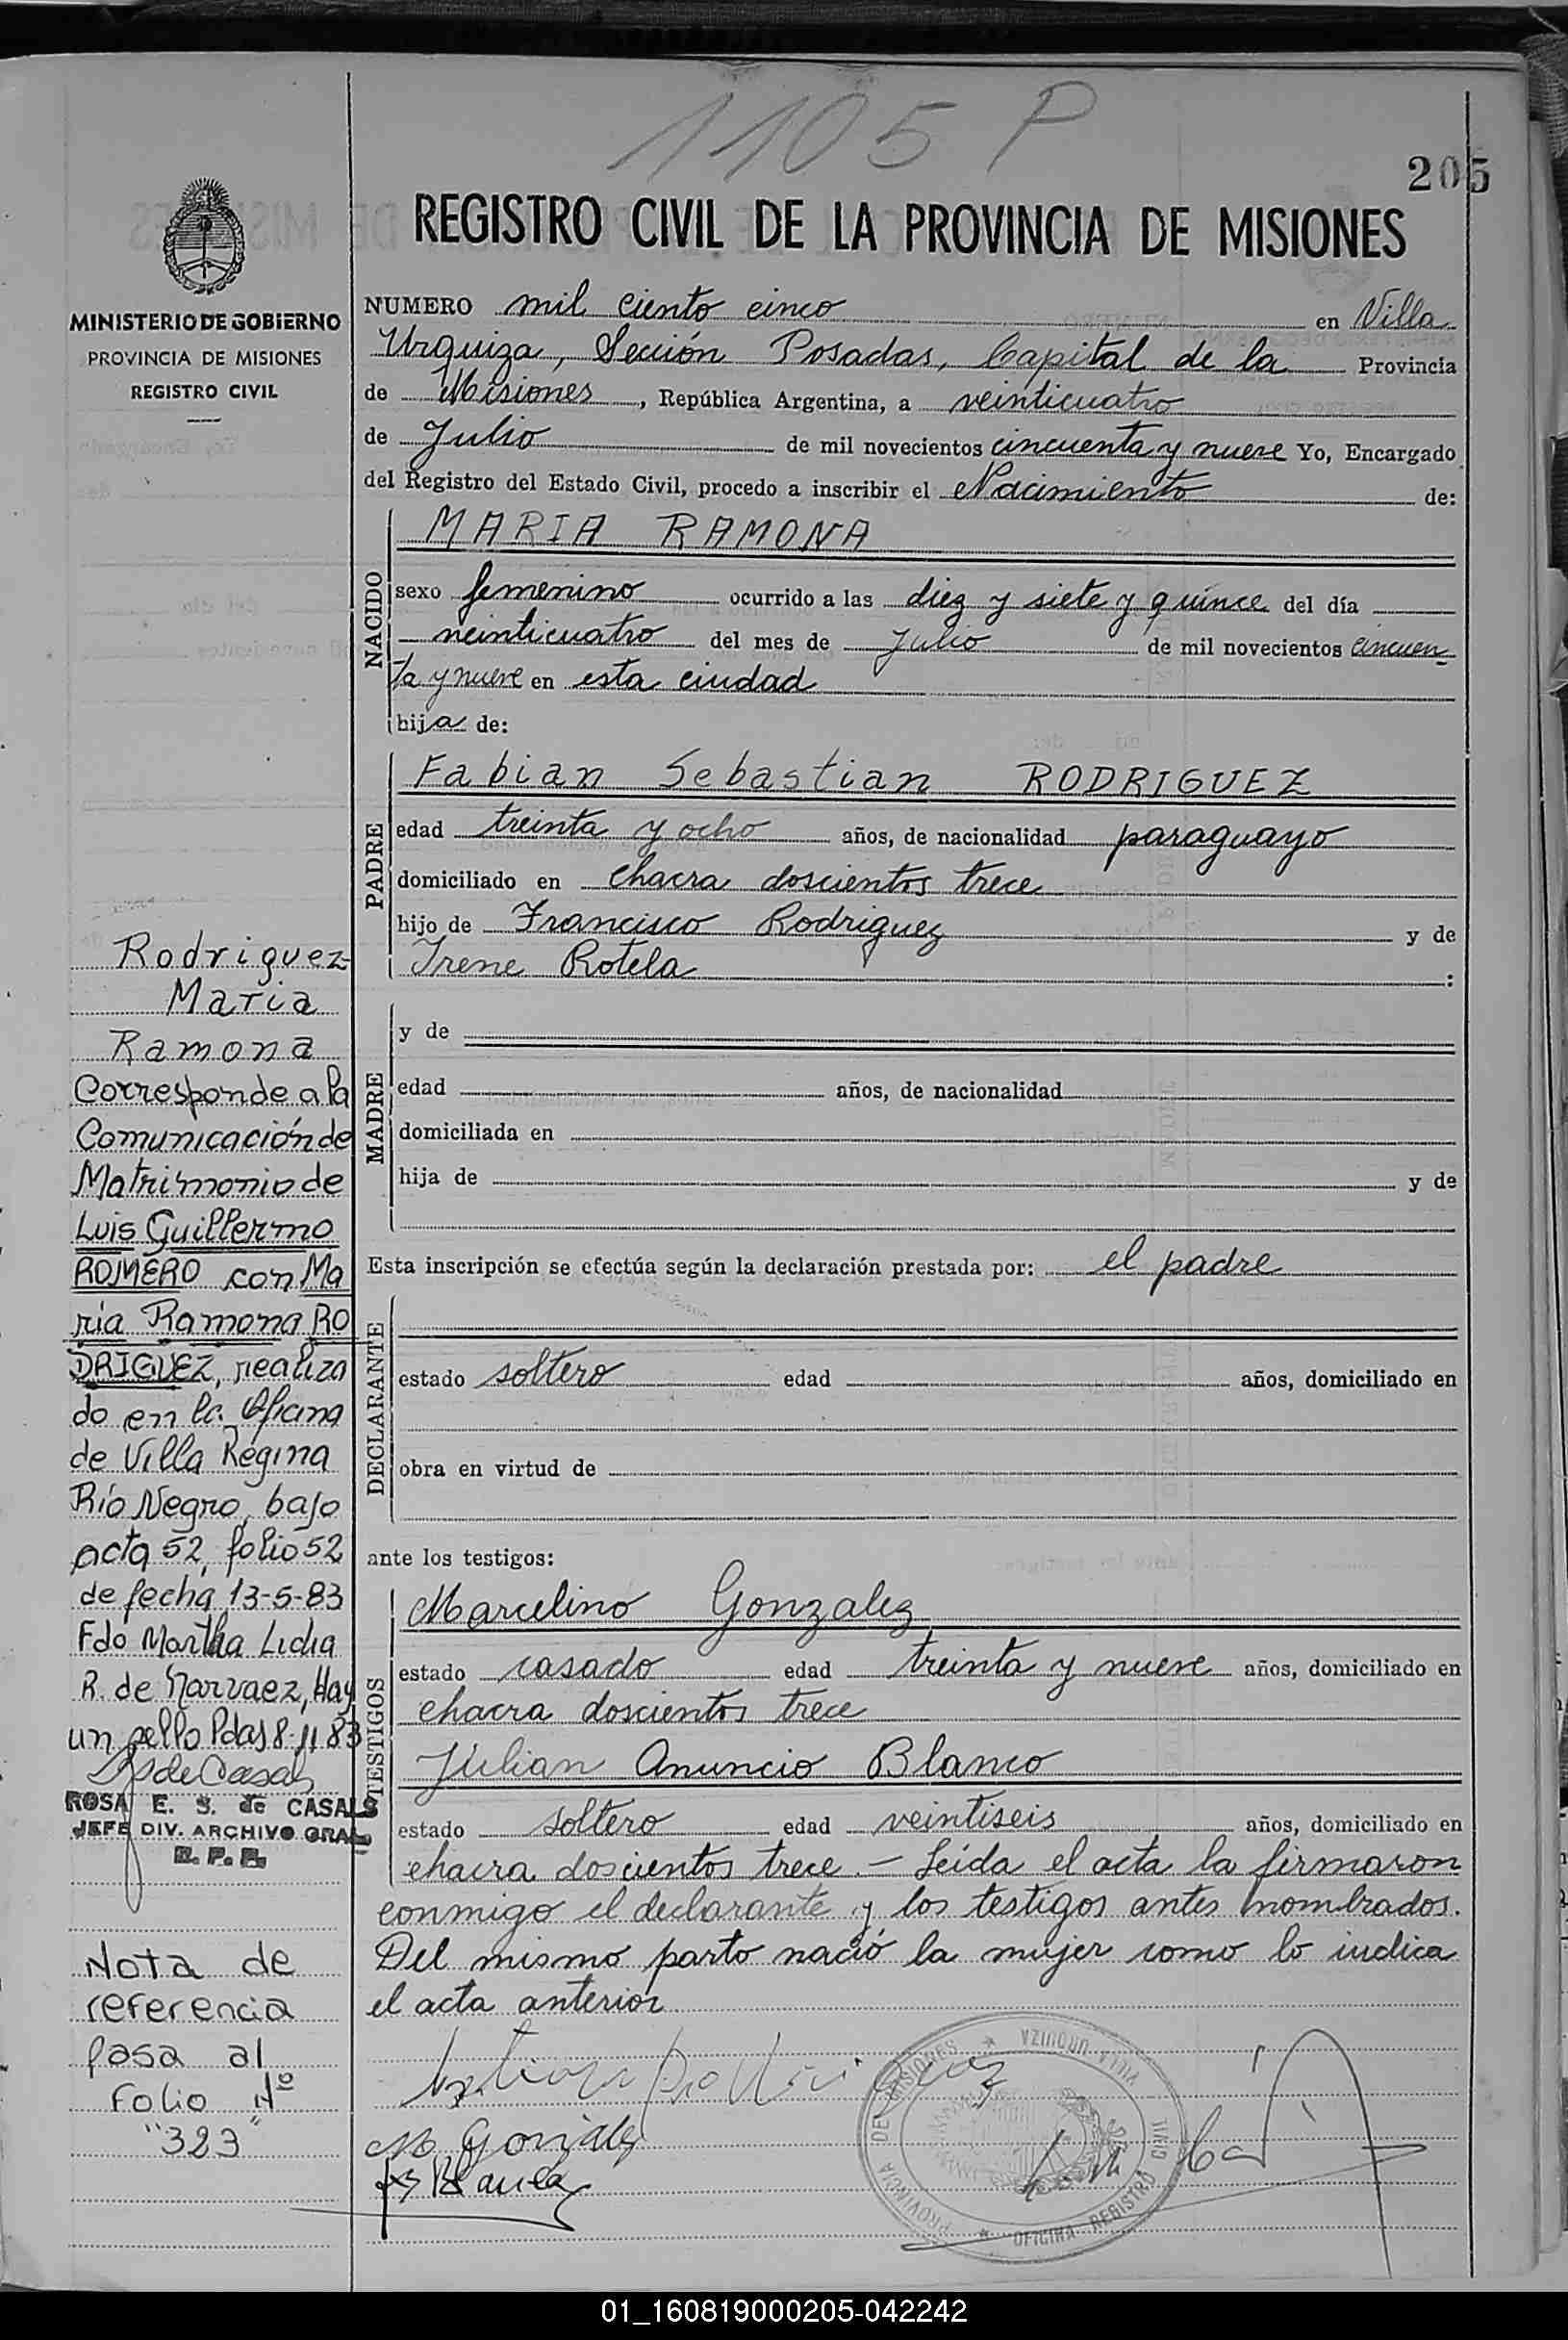 1105 P
205
REGISTRO CIVIL DE LA PROVINCIA DE MISIONES
MINISTERIO DE GOBIERNO
PROVINCIA DE MISIONES
REGISTRO CIVIL
NUMERO mil ciento cinco en Villa
Urquiza, Sección Posadas, Capital de la Provincia
de Misiones, República Argentina, a veinticuatro
de Julio de mil novecientos cincuenta y nueve Yo, Encargado
del Registro del Estado Civil, procedo a inscribir el Nacimiento de:
NACIDO
MARIA RAMONA
sexo femenino ocurrido a las diez y siete y quince del día
veinticuatro del mes de Julio de mil novecientos cincuen
ta y nueve en esta ciudad
hija de:
PADRE
Fabian Sebastian RODRIGUEZ
edad treinta y ocho años, de nacionalidad paraguayo
domiciliado en chacra doscientos trece
hijo de Francisco Rodriguez y de
Irene Rotela :
MADRE
y de
edad años, de nacionalidad
domiciliada en
hija de y de
Esta inscripción se efectúa según la declaración prestada por: el padre
DECLARANTE
estado soltero edad años, domiciliado en
obra en virtud de
ante los testigos:
TESTIGOS
Marcelino Gonzalez
estado casado edad treinta y nueve años, domiciliado en
chacra doscientos trece
Julian Anuncio Blanco
estado soltero edad veintiseis años, domiciliado en
chacra doscientos trece.- Leída el acta la firmaron
conmigo el declarante y los testigos antes nombrados.
Del mismo parto nació la mujer como lo indica
el acta anterior
M. Gonzalez
PROVINCIA DE MISIONES * VILLA URQUIZA
OFICINA REGISTRO CIVIL
Rodriguez
Maria
Ramona
Corresponde a la
Comunicación de
Matrimonio de
Luis Guillermo
ROMERO con Ma
ria Ramona RO
DRIGUEZ, realiza
do en la Oficina
de Villa Regina
Río Negro, bajo
acta 52, folio 52
de fecha 13-5-83
Fdo Martha Lidia
R. de Narvaez, Hay
un sello Pdas 8-11 83
ROSA E. S. de CASALS
JEFE DIV. ARCHIVO GRAL
R. P. P.
Nota de
referencia
pasa al
Folio Nº
"323"
01_160819000205-042242